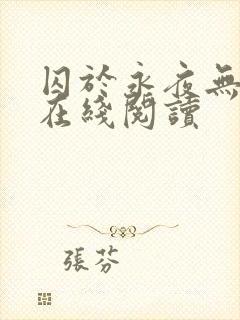 囚於永夜無
在綫閱讀
張芬